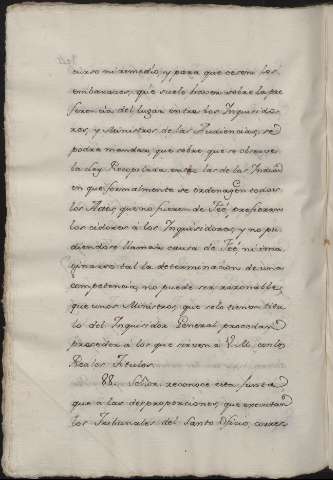 curso ni remedio, y para que cesen los
embarazos, que suele haver sobre la pre
ferencia del lugar entre los Inquisido
res, y Ministros de las Audiencias, se
podra mandar, que sobre que se observe
la Ley Recopilada entre las de las Indias
en que formalmente se ordena, q en todos
los Actos, que no fueren de Feé, prefieran
los oidores á los Inquisidores, y no pu
diendose llamar causa de Feé ni ima
ginarse tal la determinacion de una
competencia, no puede ser razonable,
que unos Ministros, que solo tienen titu
lo del Inquisidor General, procedan
preceder á los que sirven á V. M. con los
Reales Titulos.
88. Señor reconoce esta Junta,
que á las desproporciones, que executan
los Tribunales del Santo Oficio, corres-